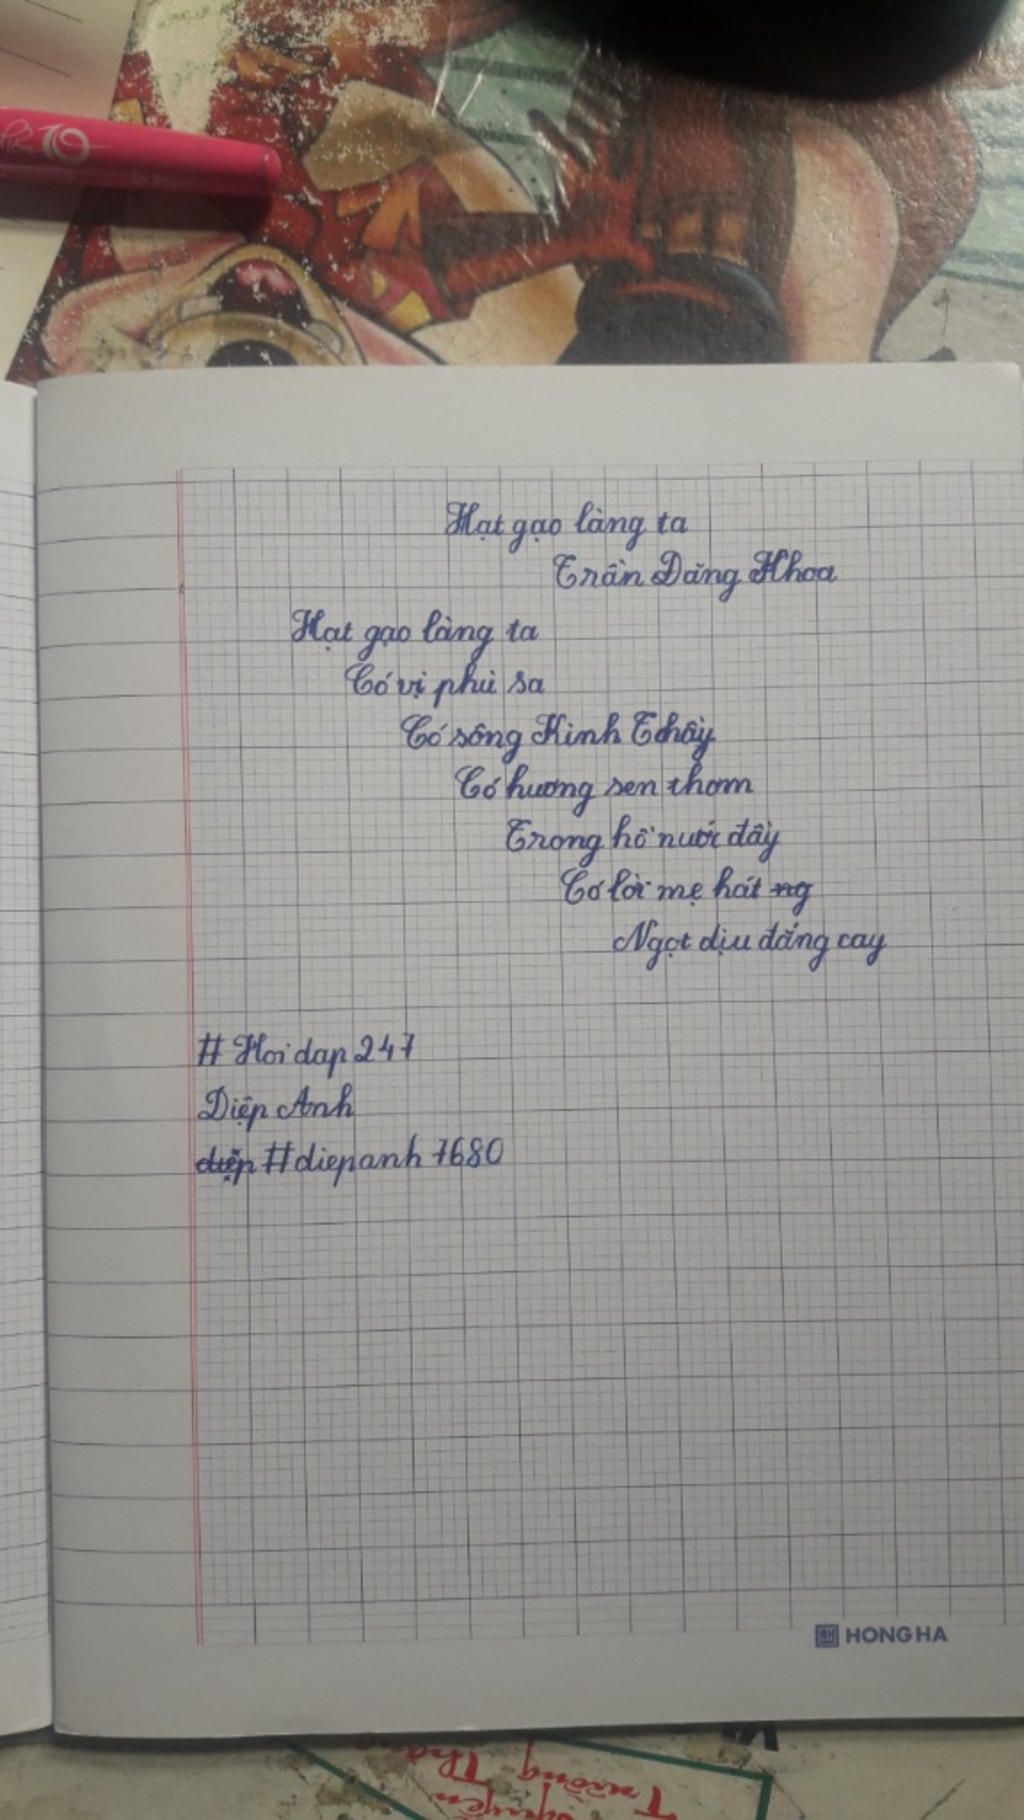 Hạt gạo làng ta
Trần Đăng Khoa
Hạt gạo làng ta
Có vị phù sa
Có sông Kinh Thầy
Có hương sen thơm
Trong hồ nước đầy
Có lời mẹ hát ng
Ngọt dịu đắng cay
# Hoi dap 247
Diệp Anh
diệp #diepanh7680
HONG HA